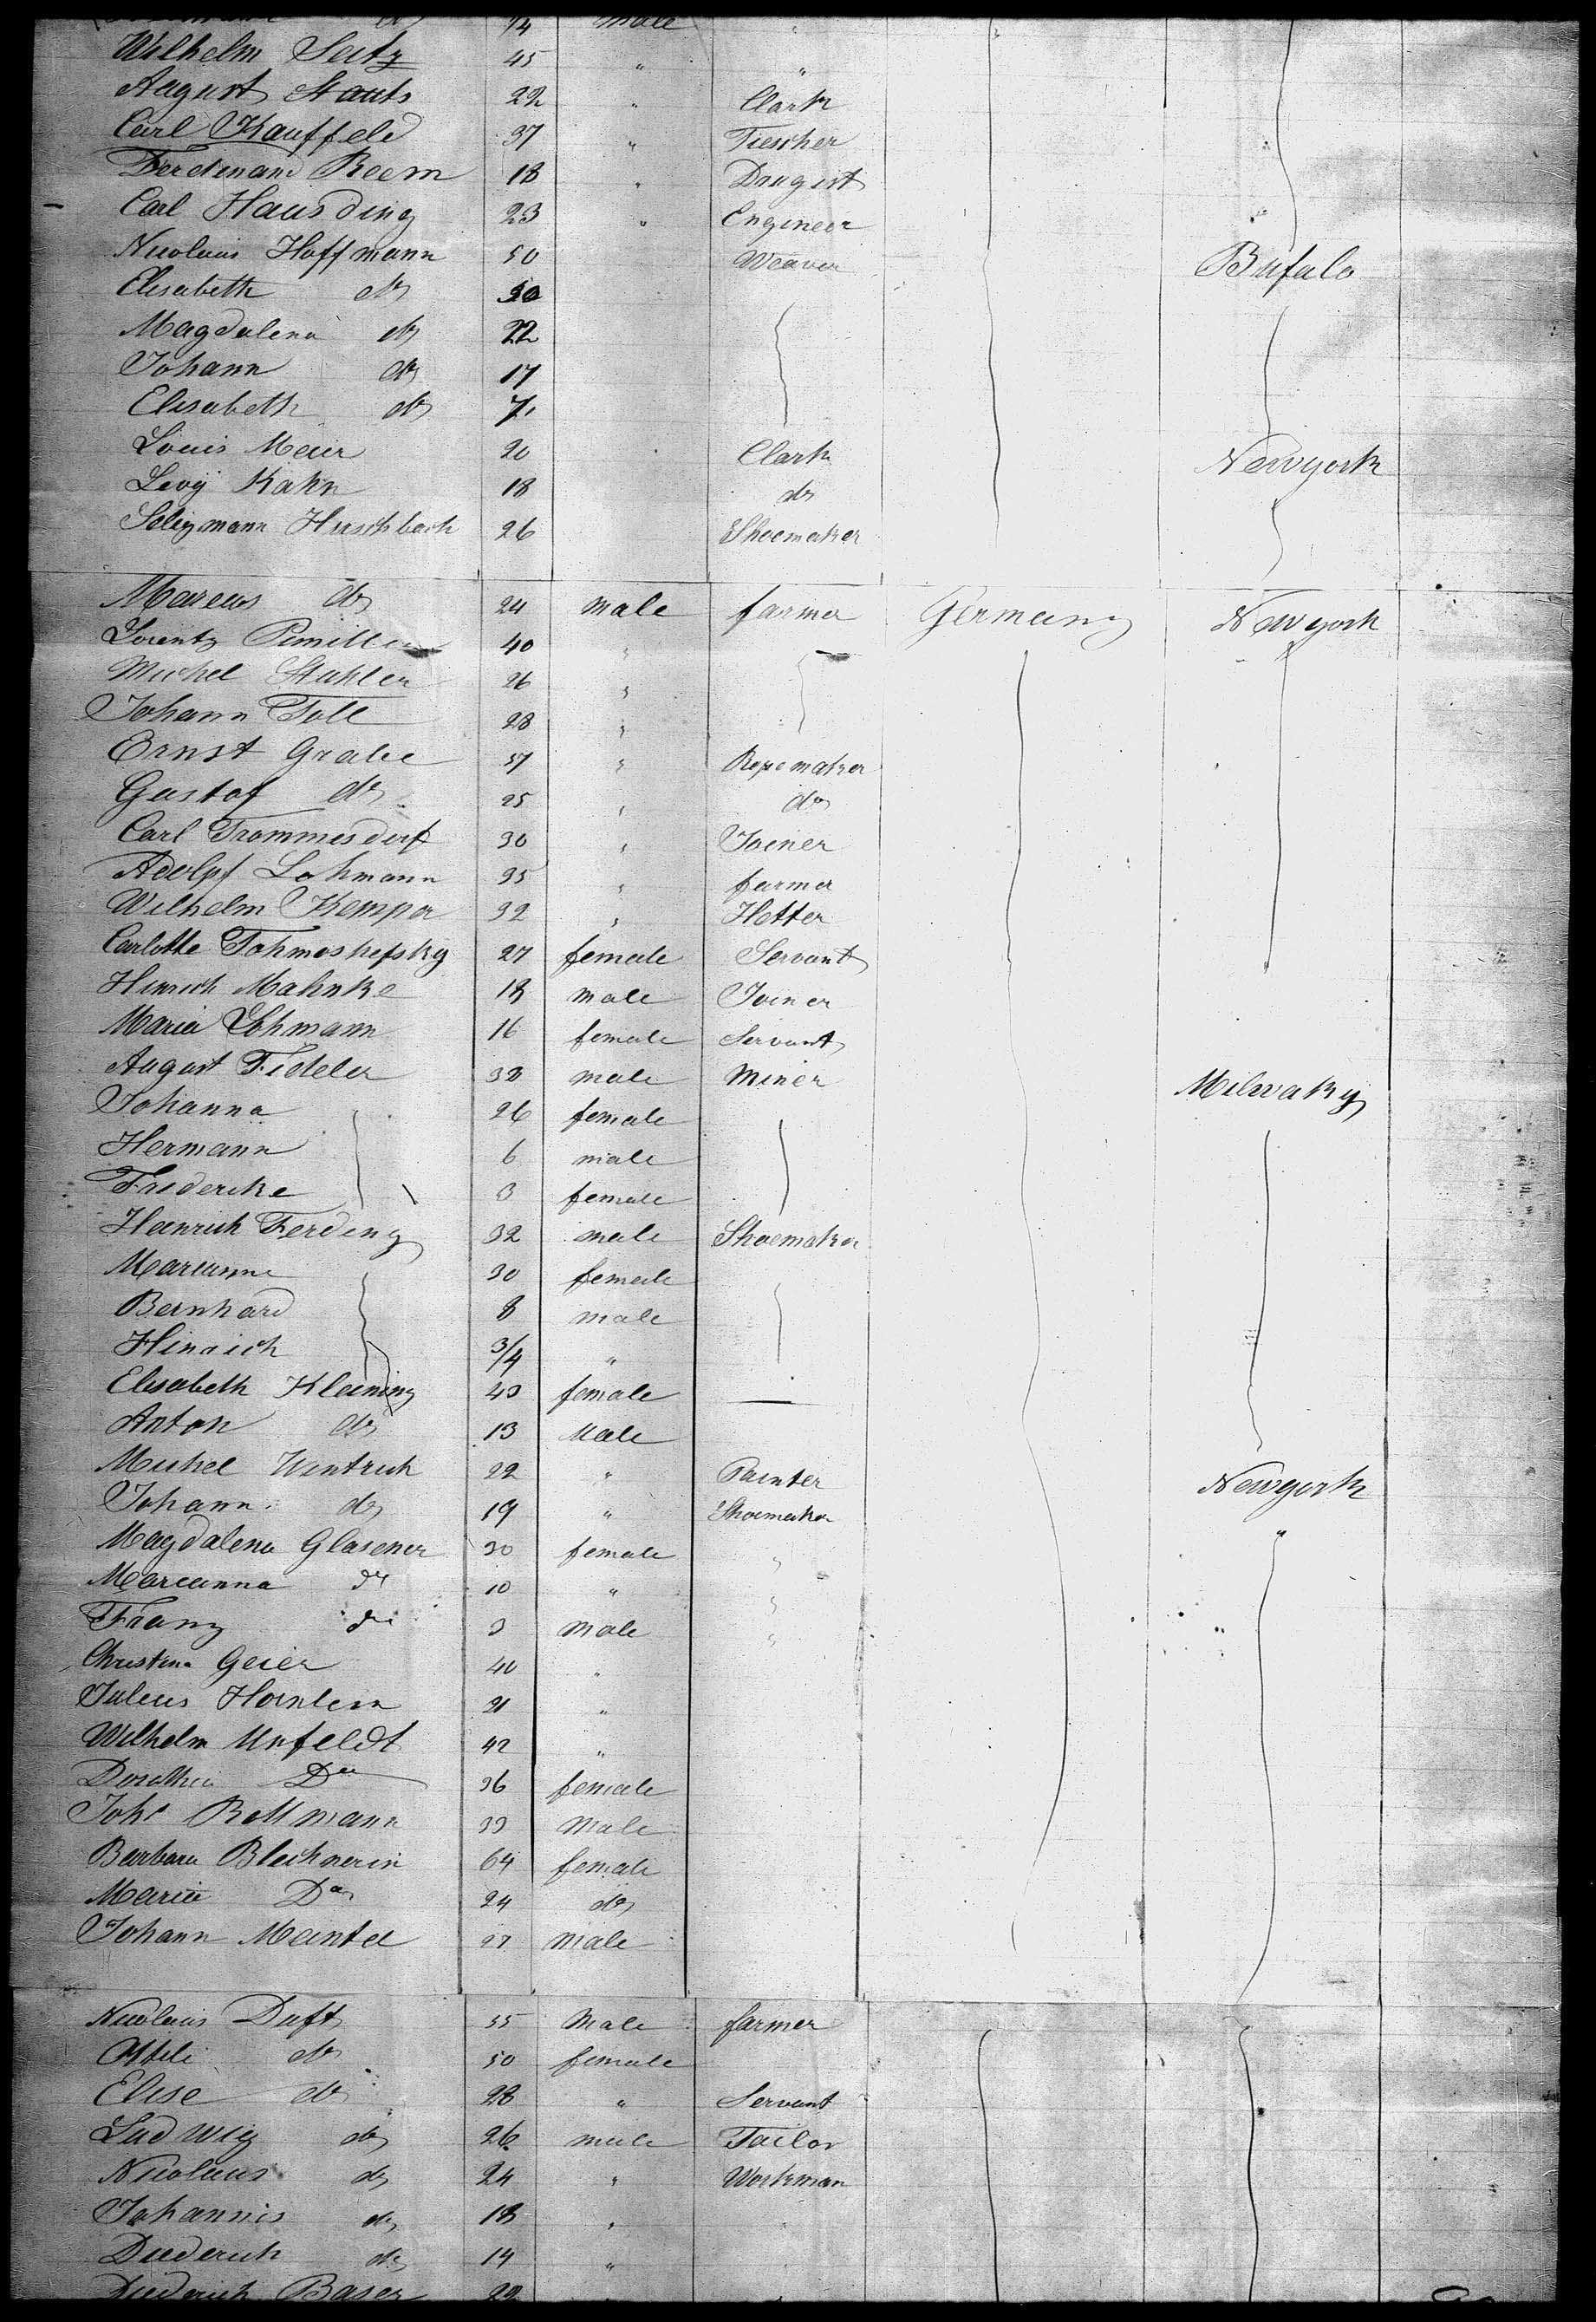 male
Wilhelm Seitz 45 " "
August Stauts 22 " Clark
Carl Kauffeld 37 " Tiescher
Ferdinand Reem 18 " Drugist
Carl Hausding 23 " Engineer
Nicolaus Hoffmann 50 Weaver Bufalo
Elisabeth do 50
Magdalena do 22
Johann do 17
Elisabeth do 7
Louis Meier 20 Clark Newyork
Levy Kahn 18 do
Seligmann Hirschbach 26 Shoemaker
Marcus do 24 male farmer Germany Newyork
Lorentz 40 "
Michel Stahler 26 "
Johann Toll 28 "
Ernst Grabe 57 " Ropemaker
Gustof do 25 " do
Carl Trommesdorf 30 " Joiner
Adolpf Lohmann 35 " farmer
Wilhelm Kemper 32 " Hotter
Carlotte 27 female Servant
Hinrich Mahnke 18 male Joiner
Maria Lohmann 16 female Servant
August Fideler 38 male Miner Milwaky
Johanna 26 female
Hermann 6 male
Friderike 3 female
Heinrich Ferding 32 male Shoemaker
Marianne 30 female
Bernhard 8 male
Hinrich 3/4 "
Elisabeth Kleining 43 female —
Anton do 13 Male
Michel Wintrich 22 " Painter Newyork
Johann do 19 " Shoemaker "
Magdalena Glasener 30 female "
Marianna do 10 " "
Franz do 3 male "
Christina Geier 40 "
Julius Hornlein 21 "
Wilhelm Unfeldt 42 "
Dorothea Do 36 female
Joh. Rottmann 33 Male
Barbara Blechnerin 64 female
Maria Do 24 do
Johann Mantel 27 Male
Nicolaus Duft 55 Male farmer
Ottili do 50 female
Elise do 28 " Servant
Ludwig do 26 male Tailor
Nicolaus do 24 " Workman
Johannis do 18 "
Diederich do 14 "
Diederich Baser 22